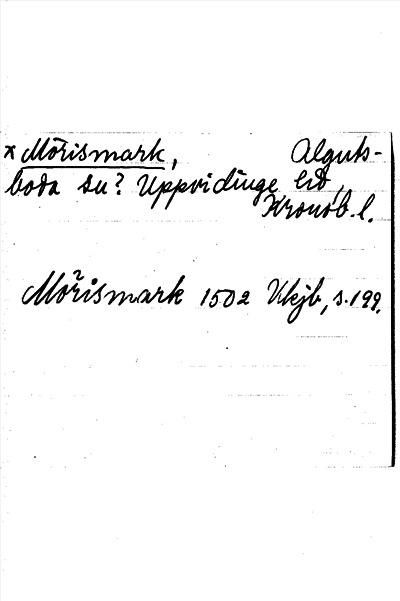 x Mörismark, Alguts-
boda sn? Uppvidinge hd,
Kronob. l.
Mörismark 1502 Vkjb, s. 199.